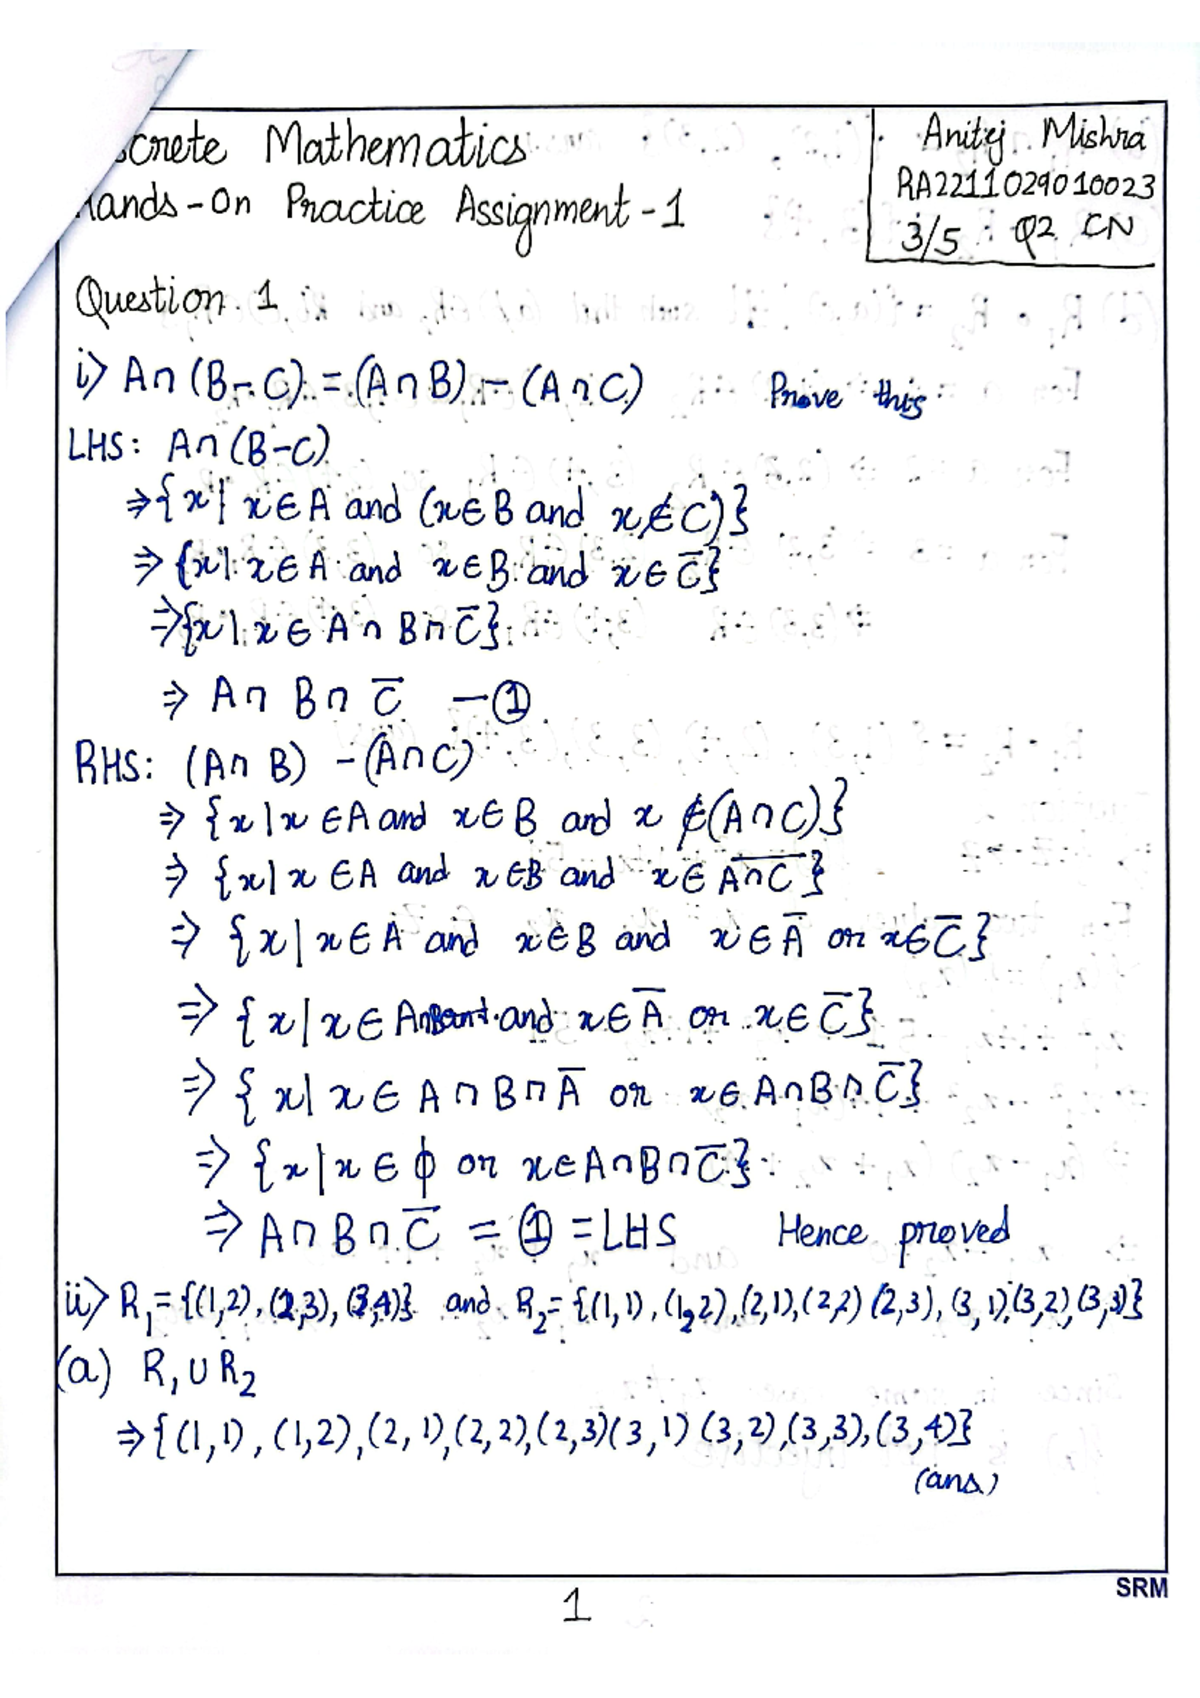 screte Mathematics
Hands-On Practice Assignment-1
Anitej Mishra
RA2211029010023
3/5 Q2 CN
Question 1
i) A∩(B-C) = (A∩B) - (A∩C) Prove this
LHS: A∩(B-C)
⇒{x| x∈A and (x∈B and x∉C)}
⇒{x| x∈A and x∈B and x∈C̅}
⇒{x| x∈A∩B∩C̅}
⇒ A∩B∩C̅ —①
RHS: (A∩B) -(A∩C)
⇒ {x|x∈A and x∈B and x∉(A∩C)}
⇒ {x|x∈A and x∈B and x∈\overline{A∩C}}
⇒ {x|x∈A and x∈B and x∈A̅ or x∈C̅}
⇒ {x|x∈A∩B and x∈A̅ or x∈C̅}
⇒ {x|x∈A∩B∩A̅ or x∈A∩B∩C̅}
⇒ {x|x∈ϕ or x∈A∩B∩C̅}
⇒ A∩B∩C̅ = ① = LHS Hence proved
ii) R₁={(1,2),(2,3),(3,4)} and R₂={(1,1),(1,2),(2,1),(2,2)(2,3),(3,1),(3,2),(3,3)}
(a) R₁∪R₂
⇒{(1,1),(1,2),(2,1),(2,2),(2,3)(3,1)(3,2),(3,3),(3,4)}
(ans)
SRM
1